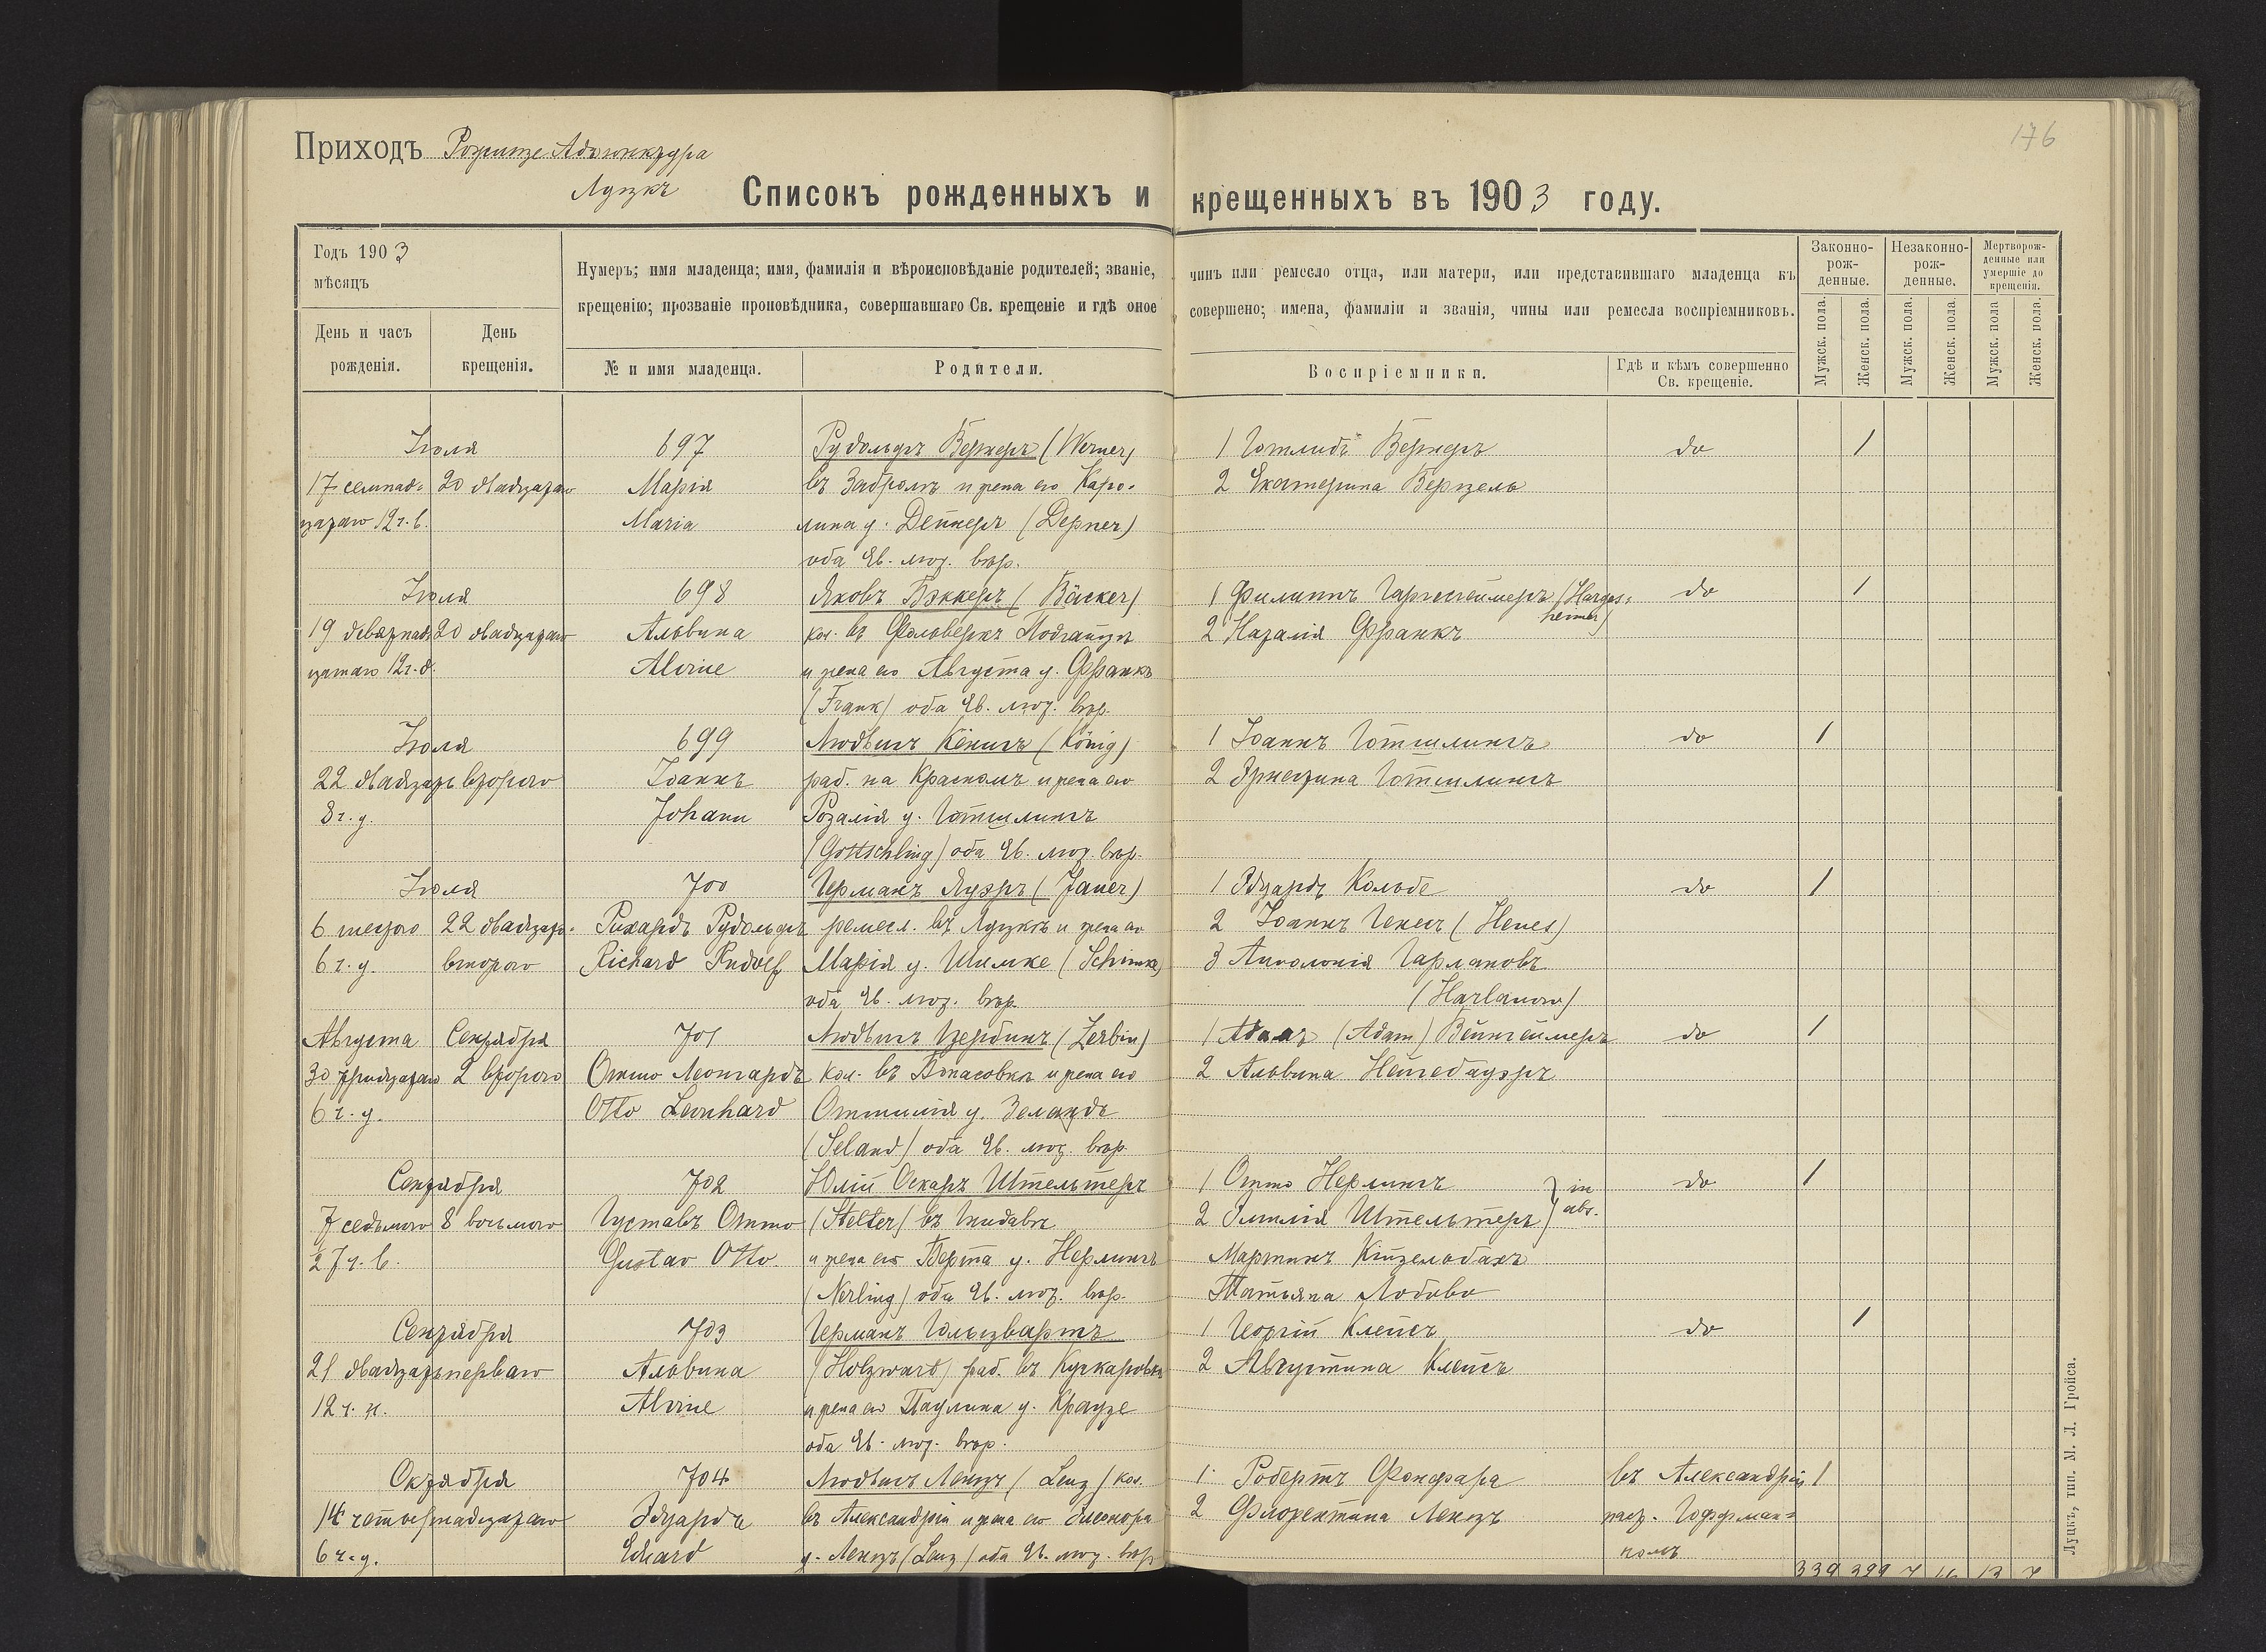 176
Приходъ Рожище Адъюнктура
Луцкъ
Списокъ рожденныхъ и крещенныхъ въ 1903 году.
Годъ 1903
мѣсяцъ
День и часъ рожденія.
День крещенія.
Нумеръ; имя младенца; имя, фамилія и вѣроисповѣданіе родителей; званіе, чинъ или ремесло отца, или матери, или представившаго младенца къ
крещенію; прозваніе проповѣдника, совершавшаго Св. крещеніе и гдѣ оное совершено; имена, фамиліи и званія, чины или ремесла воспріемниковъ.
№ и имя младенца.
Родители.
Воспріемники.
Гдѣ и кѣмъ совершенно Св. крещеніе.
Законно-рож-денные.
Незаконно-рож-денные.
Мертворож-денные или умершіе до крещенія.
Мужск. пола. Женск. пола. Мужск. пола. Женск. пола. Мужск. пола Женск. пола.
Іюля 697 Рудольфъ Вернеръ (Werner) 1 Готлибъ Вернеръ do 1
17 семнад- 20 двадцатаго Марія въ Забролѣ и жена его Каро- 2 Екатерина Верцель
цатаго 12 ч. в. Maria лина у. Депнеръ (Depner)
оба Ев. лют. вѣр.
Іюля 698 Яковъ Бэккеръ (Bäcker) 1 Филиппъ Гаргесгеймеръ (Harges- do 1
heimer)
19 девятнад- 20 двадцатаго Альвина кол. въ Фольверкѣ Подгайцѣ 2 Наталія Франкъ
цатаго 12 ч. д. Alvine и жена его Августа у. Франкъ
(Frank) оба Ев. лют. вѣр.
Іюля 699 Людвигъ Кёнигъ (König) 1 Іоаннъ Готшлингъ do 1
22 двадцать второго Іоаннъ раб. на Красномъ и жена его 2 Эрнестина Готшлингъ
8 ч. у. Johann Розалія у. Готшлингъ
(Gottschling) оба Ев. лют. вѣр.
Іюля 700 Германъ Яуэръ (Jauer) 1 Эдуардъ Кольбе do 1
6 шестого 22 двадцать Рихардъ Рудольфъ ремесл. въ Луцкѣ и жена его 2 Іоаннъ Генесъ (Henes)
6 ч. у. второго Richard Rudolf Марія у. Шимке (Schimke) 3 Аполонія Гарлановъ
оба Ев. лют. вѣр. (Harlanow)
Августа Сентября 701 Людвигъ Цербинъ (Zerbin) 1 Адамъ (Adam) Вейнгеймеръ do 1
30 тридцатаго 2 второго Отто Леонгардъ кол. въ Апасовкѣ и жена его 2 Альвина Нейгебауэръ
6 ч. у. Otto Leonhard Оттилія у. Зеландъ
(Seland) оба Ев. лют. вѣр.
Сентября 702 Юлій Оскаръ Штельтеръ 1 Отто Нерлингъ } in do 1
7 седьмого 8 восьмого Густавъ Отто (Stelter) въ Гнидавѣ 2 Эмилія Штельтеръ } abs.
2 ч. в. Gustav Otto и жена его Берта у. Нерлингъ Мартинъ Кицельбахъ
(Nerling) оба Ев. лют. вѣр. Татьяна Лобово
Сентября 703 Германъ Гольцвартъ 1 Георгій Клейсъ do 1
21 двадцать перваго Альвина (Holzwart) раб. въ Кучкаровкѣ 2 Августина Клейсъ
12 ч. н. Alvine и жена его Паулина у. Краузе
оба Ев. лют. вѣр.
Октября 704 Людвигъ Ленцъ (Lenz) кол. 1 Робертъ Фонфара въ Александріи 1
14 четырнадцатаго Эдуардъ въ Александріи и жена его Элеонора 2 Флорентина Ленцъ паст. Гоффман-
6 ч. у. Eduard у. Ленцъ (Lenz) оба Ев. лют. вѣр. номъ
339 399 7 13 7
Луцкъ, тип. М. Л. Гройса.